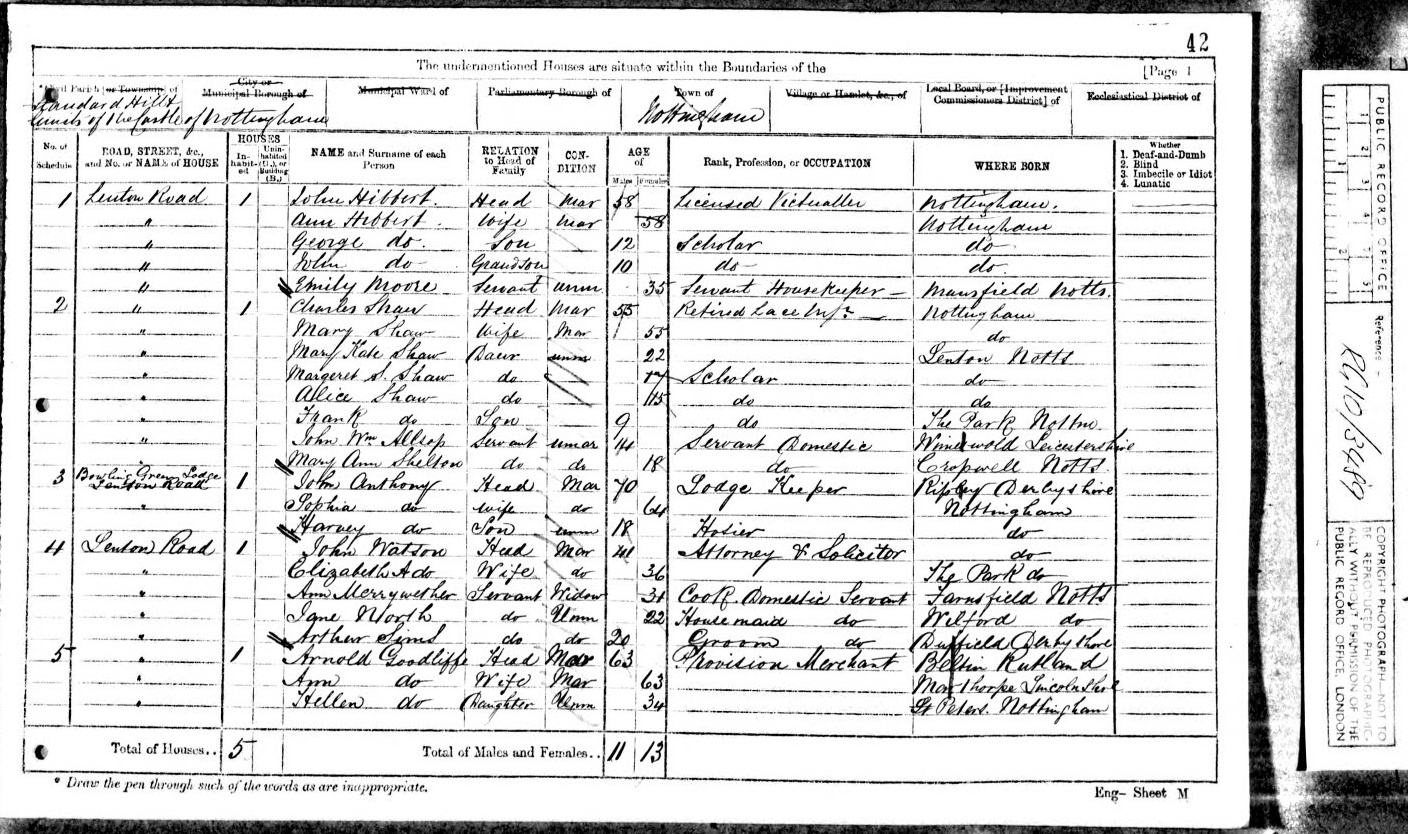 42
The undermentioned Houses are situate within the Boundaries of the
[Page 1
Civil Parish [or Township] of
City or Municipal Borough of
Municipal Ward of
Parliamentary Borough of
Town of
Village or Hamlet, &c., of
Local Board, or [Improvement Commissioners District] of
Ecclesiastical District of
Standard Hill &
limits of the Castle of Nottingham
Nottingham
No. of Schedule
ROAD, STREET, &c., and No. or NAME of HOUSE
HOUSES
In-habit-ed
Unin-habited (U.), or Building (B.)
NAME and Surname of each Person
RELATION to Head of Family
CON-DITION
AGE of
Males
Females
Rank, Profession, or OCCUPATION
WHERE BORN
Whether
1. Deaf-and-Dumb
2. Blind
3. Imbecile or Idiot
4. Lunatic
1 Lenton Road 1 John Hibbert. Head Mar 58 Licensed Victualler Nottingham.
" Ann Hibbert. Wife Mar 58 Nottingham
" George do. Son 12 Scholar do
" John do Grandson 10 do do.
" Emily Moore Servant unm. 35 Servant Housekeeper Mansfield Notts.
2 " 1 Charles Shaw Head Mar 55 Retired Lace Mfr Nottingham
" Mary Shaw Wife Mar 55 do
" Mary Kate Shaw Daur unm 22 Lenton Notts
" Margeret S. Shaw do 17 Scholar do
" Alice Shaw do 15 do do
" Frank do Son 9 do The Park Nottm
" John Wm Allsop Servant unmar 14 Servant Domestic Wimeswold Leicestershire
" Mary Ann Shelton do do 18 do Cropwell Notts.
3 Bowling Green Lodge Lenton Road 1 John Anthony Head Mar 70 Lodge Keeper Ripley Derbyshire
" Sophia do Wife do 64 Nottingham
Harvey do Son unm 18 Hosier do
4 Lenton Road 1 John Watson Head Mar 41 Attorney & Solicitor do
" Elizabeth A do Wife do 36 The Park do
" Ann Merrywether Servant Widow 34 Cook Domestic Servant Farnsfield Notts
" Jane North do Unm 22 Housemaid do Wilford do
" Arthur Sims do do 20 Groom do Duffield Derbyshire
5 " 1 Arnold Goodliffe Head Mar 63 Provision Merchant Belton Rutland
" Ann do Wife Mar 63 Lincolnshire
" Hellen do Daughter Unm 34 St Peters. Nottingham
Total of Houses.. 5 Total of Males and Females.. 11 13
* Draw the pen through such of the words as are inappropriate.
Eng— Sheet M
PUBLIC RECORD OFFICE
1 2 3 4 5 6
1 2
Reference :-
RG10/3489
COPYRIGHT PHOTOGRAPH - NOT TO
BE REPRODUCED PHOTOGRAPHIC-
ALLY WITHOUT PERMISSION OF THE
PUBLIC RECORD OFFICE, LONDON